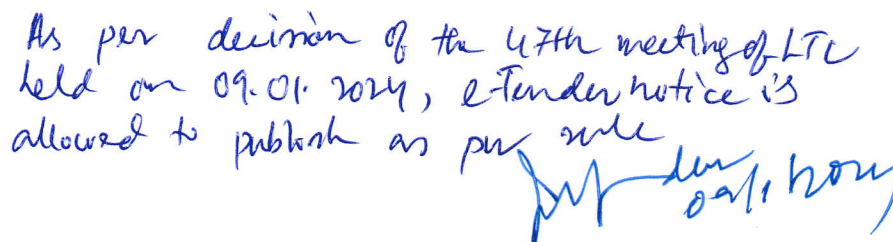 As per decision of the 47th meeting of LTC
held on 09.01.2024, e-Tender notice is
allowed to publish as per rule
09/1/2024